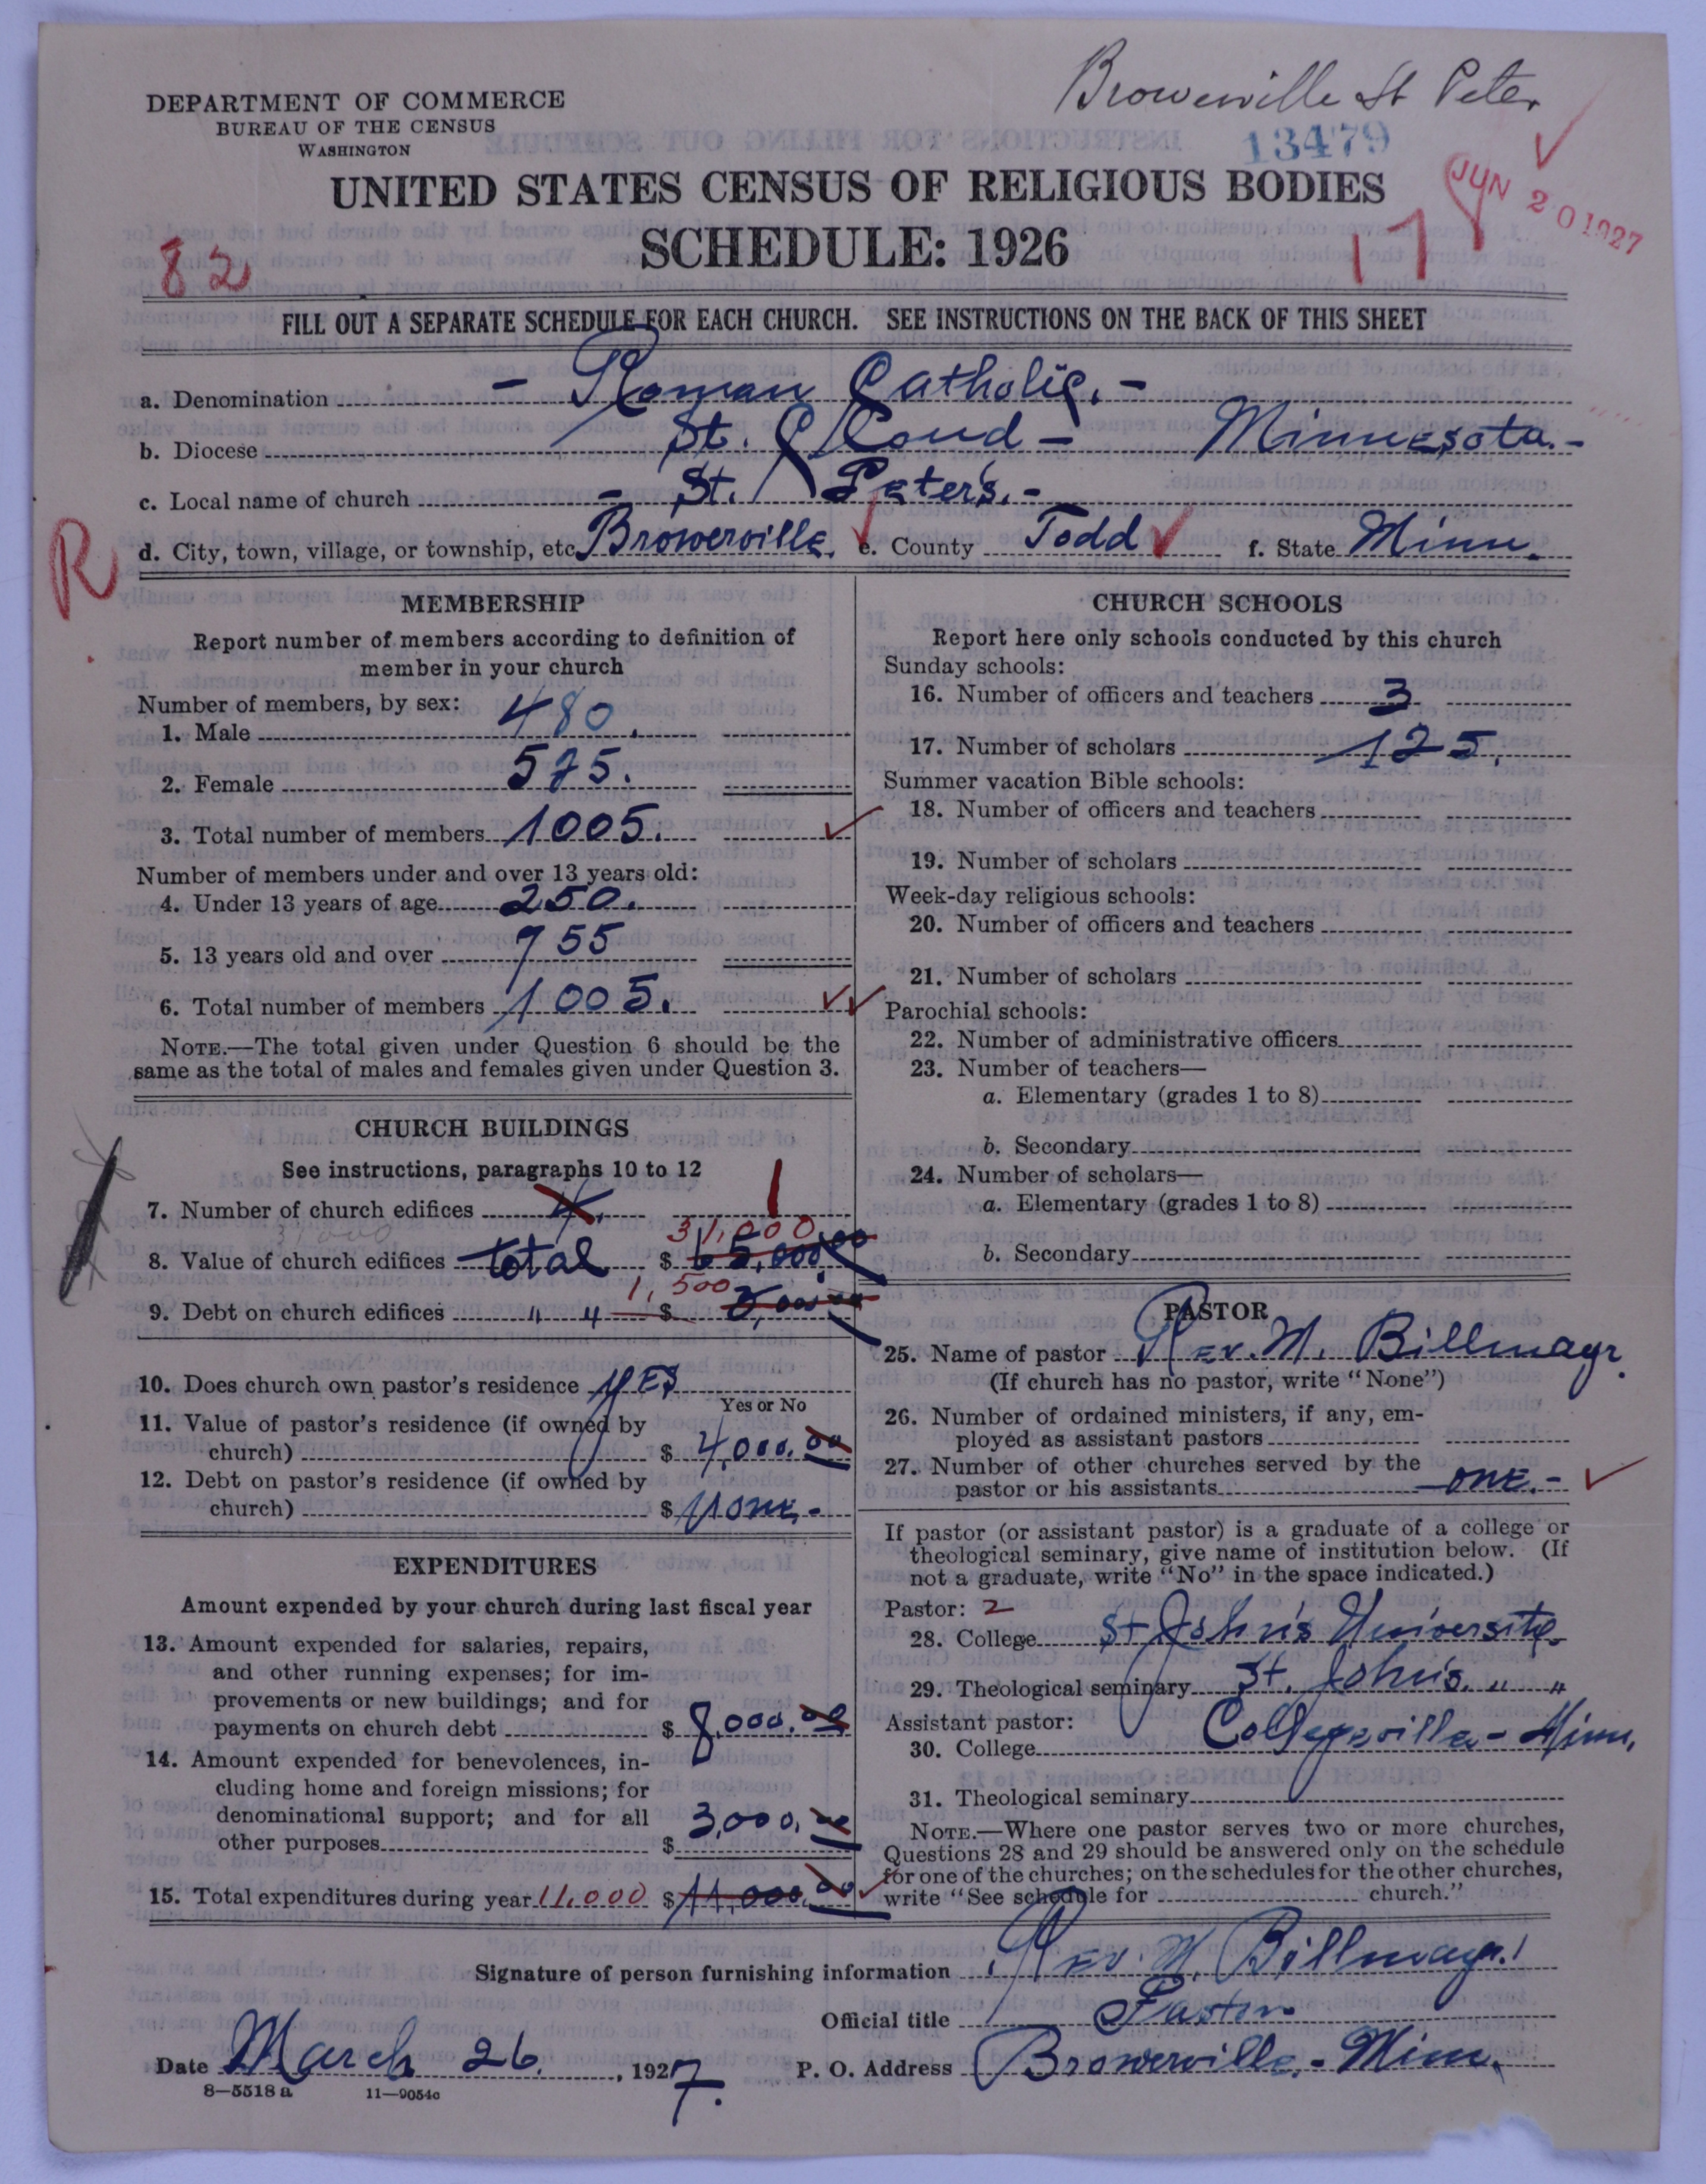 Browerville St Peter
DEPARTMENT OF COMMERCE
BUREAU OF THE CENSUS
WASHINGTON
13479
JUN 20 1927
UNITED STATES CENSUS OF RELIGIOUS BODIES
SCHEDULE: 1926
82
FILL OUT A SEPARATE SCHEDULE FOR EACH CHURCH. SEE INSTRUCTIONS ON THE BACK OF THIS SHEET
a. Denomination - Roman Catholic. -
b. Diocese St. Cloud - Minnesota. -
c. Local name of church - St. Peter's. -
d. City, town, village, or township, etc. Browerville. e. County Todd f. State Minn.
R
MEMBERSHIP
Report number of members according to definition of
member in your church
Number of members, by sex:
1. Male 480.
2. Female 525.
3. Total number of members 1005.
Number of members under and over 13 years old:
4. Under 13 years of age 250.
5. 13 years old and over 755
6. Total number of members 1005.
NOTE.—The total given under Question 6 should be the
same as the total of males and females given under Question 3.
CHURCH BUILDINGS
See instructions, paragraphs 10 to 12
7. Number of church edifices 4. 1
31,000
31,000
8. Value of church edifices total $ 65,000.00
1,500
9. Debt on church edifices " " $ 5,000.00
10. Does church own pastor's residence yes
Yes or No
11. Value of pastor's residence (if owned by
church) $ 4,000.00
12. Debt on pastor's residence (if owned by
church) $ None. -
EXPENDITURES
Amount expended by your church during last fiscal year
13. Amount expended for salaries, repairs,
and other running expenses; for im-
provements or new buildings; and for
payments on church debt $ 8,000.00
14. Amount expended for benevolences, in-
cluding home and foreign missions; for
denominational support; and for all
other purposes $ 3,000.00
15. Total expenditures during year 11,000 $ 11,000.00
CHURCH SCHOOLS
Report here only schools conducted by this church
Sunday schools:
16. Number of officers and teachers 3
17. Number of scholars 125.
Summer vacation Bible schools:
18. Number of officers and teachers
19. Number of scholars
Week-day religious schools:
20. Number of officers and teachers
21. Number of scholars
Parochial schools:
22. Number of administrative officers
23. Number of teachers—
a. Elementary (grades 1 to 8)
b. Secondary
24. Number of scholars—
a. Elementary (grades 1 to 8)
b. Secondary
PASTOR
25. Name of pastor Rev. M. Billmayr.
(If church has no pastor, write "None")
26. Number of ordained ministers, if any, em-
ployed as assistant pastors
27. Number of other churches served by the
pastor or his assistants one. -
If pastor (or assistant pastor) is a graduate of a college or
theological seminary, give name of institution below. (If
not a graduate, write "No" in the space indicated.)
Pastor: 2
28. College St John's University.
29. Theological seminary St. John's. " "
Assistant pastor: Collegeville - Minn.
30. College
31. Theological seminary
NOTE.—Where one pastor serves two or more churches,
Questions 28 and 29 should be answered only on the schedule
for one of the churches; on the schedules for the other churches,
write "See schedule for church."
Signature of person furnishing information Rev. M. Billmayr.
Official title Pastor
Date March 26. , 1927. P. O. Address Browerville. - Minn.
8—5518 a 11—9054c